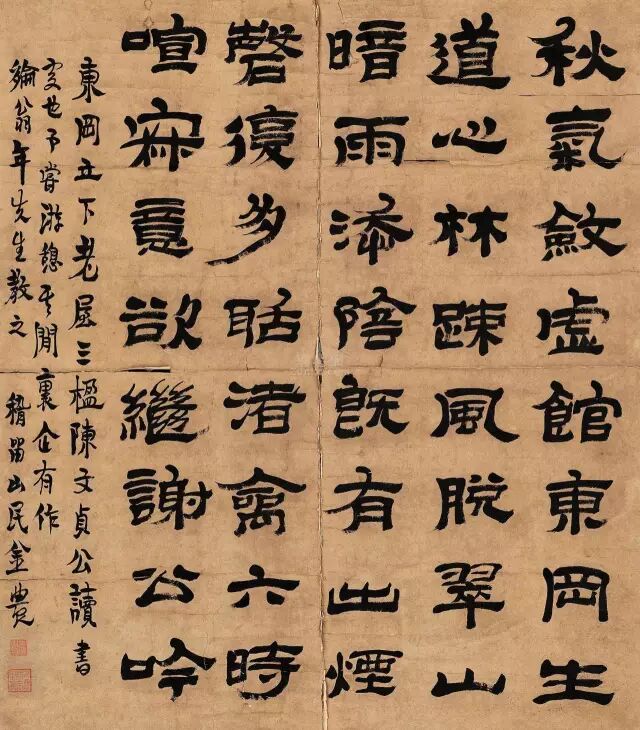 秋氣斂虛館東岡生
道心林踈風脫翠山
暗雨添陰既有出煙
磬復多聒渚禽六時
喧寂意欲繼謝公吟
東岡丘下老屋三楹陳文貞公讀書
處也予嘗游憩其間裏企有作
綸翁年先生教之 稽留山民金農